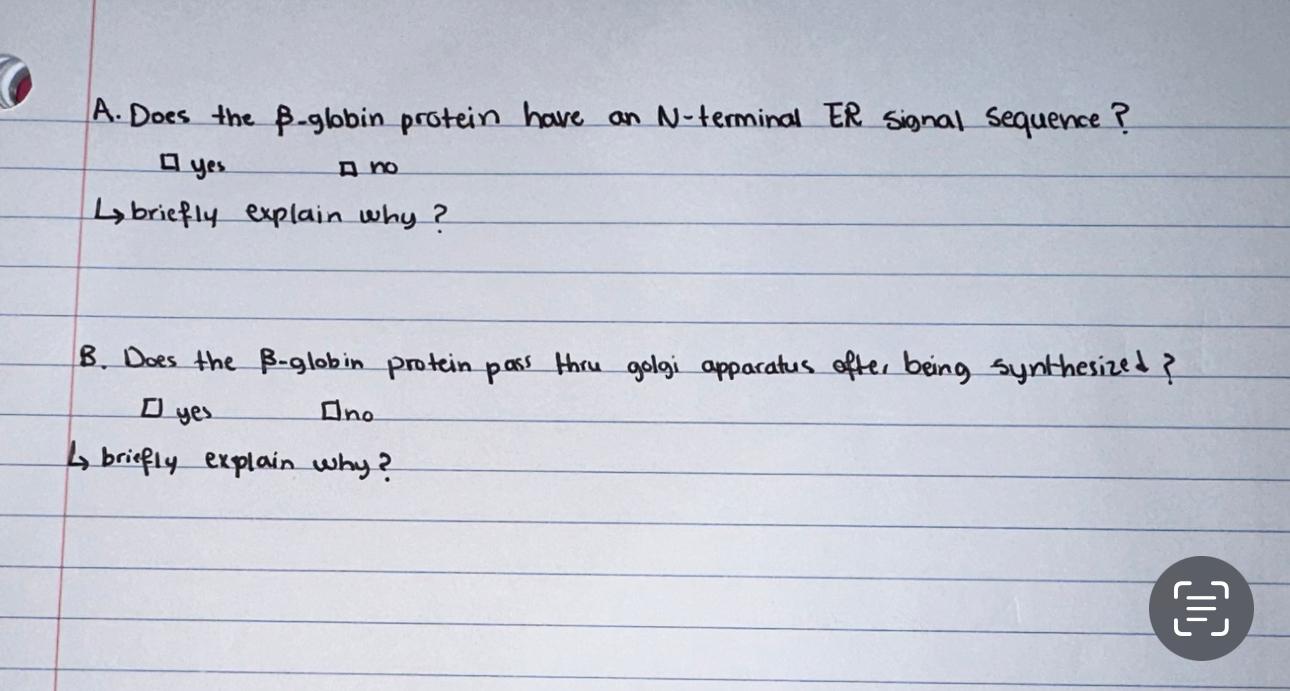 A. Does the β-globin protein have an N-terminal ER signal sequence?
□ yes □ no
↳ briefly explain why?
B. Does the β-globin protein pass thru golgi apparatus after being synthesized?
□ yes □ no
↳ briefly explain why?